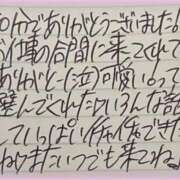 0分でありがとうございました!
仕事の合間に来てくれて
ありがと(泣)可愛いって
喜んでくれたりいろんな話
していっぱいイチャイチャできた
ねまたいつでも来てね